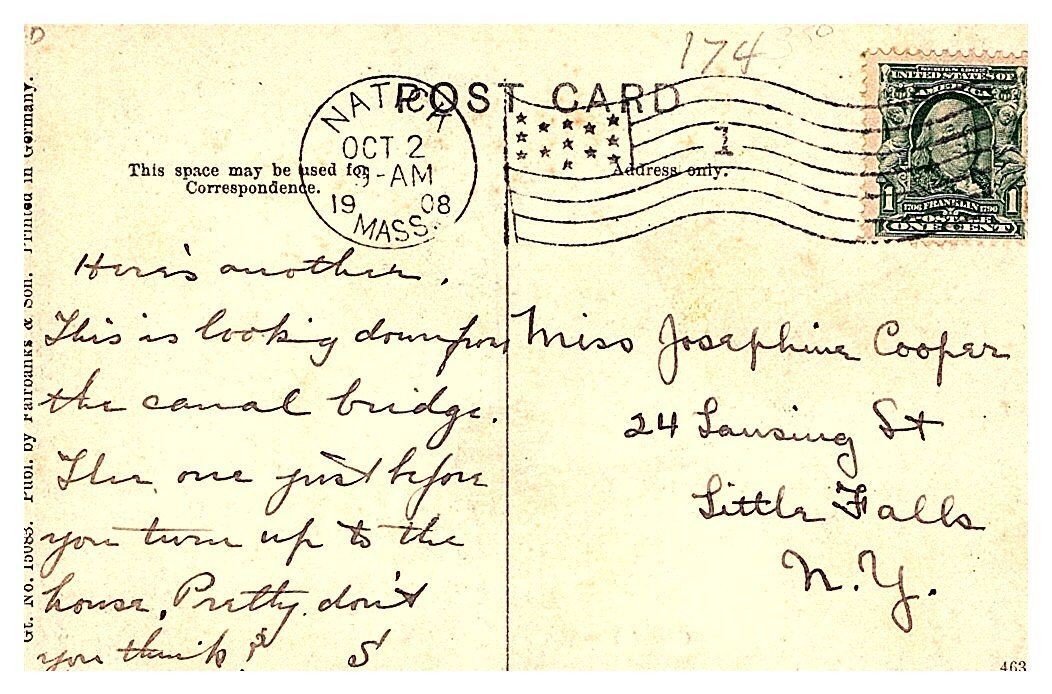 174
POST CARD
NATICK
OCT 2
9-AM
1908
MASS.
1
SERIES 1902
UNITED STATES OF
AMERICA
1706 FRANKLIN 1790
1 POSTAGE 1
ONE CENT
This space may be used for
Correspondence.
Address only.
Here's another.
This is looking down from
the canal bridge.
The one just before
you turn up to the
house. Pretty don't
you think? S
Miss Josephine Cooper
24 Lansing St
Little Falls
N.Y.
Gt. No. 15083. Publ. by Fairbanks & Son. Printed in Germany.
463